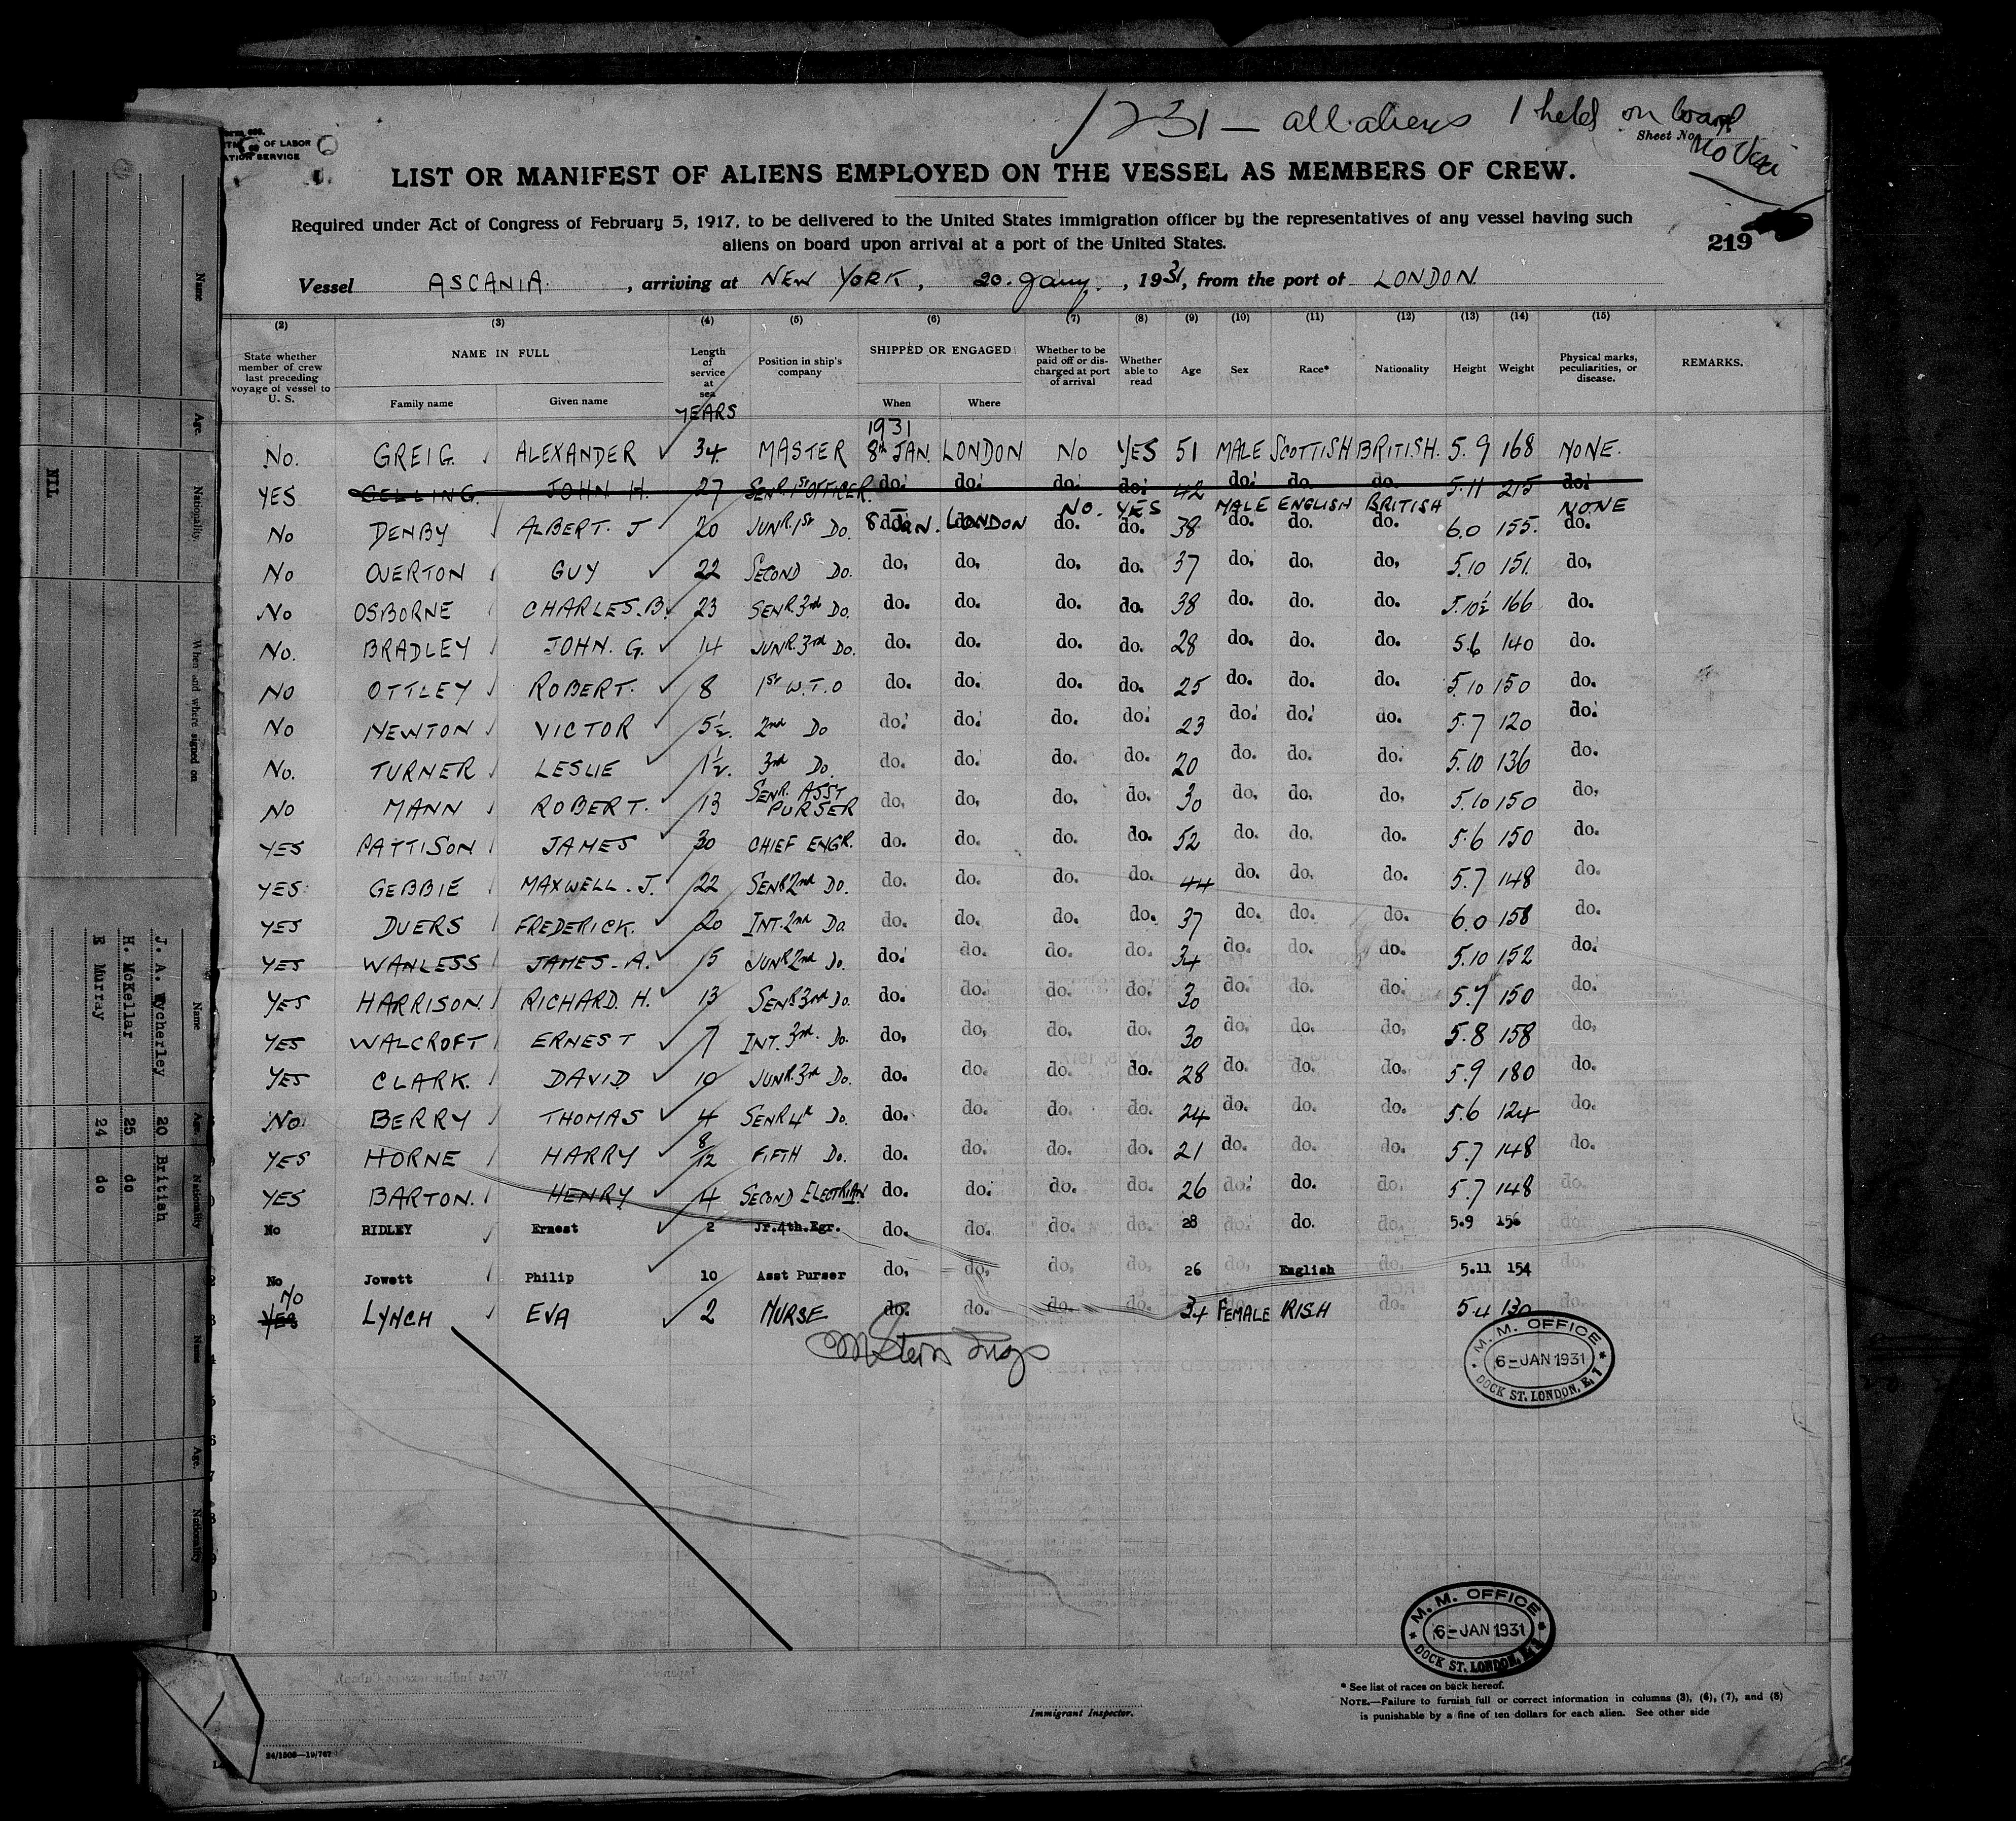 1231 — all aliens 1 held on board
Sheet No.
No Visa
OF LABOR
SERVICE
LIST OR MANIFEST OF ALIENS EMPLOYED ON THE VESSEL AS MEMBERS OF CREW.
Required under Act of Congress of February 5, 1917, to be delivered to the United States immigration officer by the representatives of any vessel having such
aliens on board upon arrival at a port of the United States.
219
Vessel ASCANIA , arriving at NEW YORK , 20. Jany. , 1931, from the port of LONDON
(2) (3) (4) (5) (6) (7) (8) (9) (10) (11) (12) (13) (14) (15)
State whether member of crew last preceding voyage of vessel to U. S. NAME IN FULL Family name Given name Length of service at sea YEARS Position in ship's company SHIPPED OR ENGAGED When Where Whether to be paid off or discharged at port of arrival Whether able to read Age Sex Race* Nationality Height Weight Physical marks, peculiarities, or disease. REMARKS.
1931
No. GREIG. ALEXANDER 34 MASTER 8th JAN. LONDON NO YES 51 MALE SCOTTISH BRITISH. 5.9 168 NONE.
YES GELLING JOHN H. 27 SENR 1ST OFFICER. do. do. do. do. 42 do. do. do. 5.11 215 do.
NO. YES MALE ENGLISH BRITISH NONE
No DENBY ALBERT. J 20 JUNR. 1st Do. 8 JAN. LONDON do. do. 38 do. do. do. 6.0 155. do.
No OVERTON GUY 22 SECOND Do. do. do. do. do. 37 do. do. do. 5.10 151. do.
No OSBORNE CHARLES. B. 23 SENR. 3rd Do. do. do. do. do. 38 do. do. do. 5.10½ 166 do.
No. BRADLEY JOHN. G. 14 JUNR. 3rd Do. do. do. do. do. 28 do. do. do. 5.6 140 do.
No OTTLEY ROBERT. 8 1st W.T.O do. do. do. do. 25 do. do. do. 5.10 150 do.
No NEWTON VICTOR 5½. 2nd Do do. do. do. do. 23 do. do. do. 5.7 120 do.
No. TURNER LESLIE 1½. 3rd Do. do. do. do. do. 20 do. do. do. 5.10 136 do.
No MANN ROBERT. 13 SENR. ASST PURSER do. do. do. do. 30 do. do. do. 5.10 150 do.
YES PATTISON JAMES 30 CHIEF ENGR. do. do. do. do. 52 do. do. do. 5.6 150 do.
YES GEBBIE MAXWELL. J. 22 SENR 2nd Do. do. do. do. do. 44 do. do. do. 5.7 148 do.
YES DUERS FREDERICK. 20 INT. 2nd Do do. do. do. do. 37 do. do. do. 6.0 158 do.
YES WANLESS JAMES. A. 15 JUNR 2nd Do. do. do. do. do. 34 do. do. do. 5.10 152 do.
YES HARRISON. RICHARD. H. 13 SENR 3rd Do. do. do. do. do. 30 do. do. do. 5.7 150 do.
YES WALCROFT ERNEST 7 INT. 3rd. Do. do. do. do. do. 30 do. do. do. 5.8 158 do.
YES CLARK. DAVID 10 JUNR. 3rd Do. do. do. do. do. 28 do. do. do. 5.9 180 do.
No BERRY THOMAS 4 SENR 4th Do. do. do. do. do. 24 do. do. do. 5.6 124 do.
YES HORNE HARRY 8/12 FIFTH Do. do. do. do. do. 21 do. do. do. 5.7 148 do.
YES BARTON. HENRY 4 SECOND ELECTRIAN do. do. do. do. 26 do. do. do. 5.7 148 do.
No RIDLEY Ernest 2 Jr.4th.Egr. do. do. do. do. 28 do. do. do. 5.9 156 do.
No Jowett Philip 10 Asst Purser do. do. do. do. 26 do. English do. 5.11 154 do.
NO YES LYNCH EVA 2 NURSE do. do. do. do. 34 FEMALE IRISH do. 5.4 130 do.
M. M. OFFICE
6-JAN 1931
DOCK ST. LONDON, E. 1
M. M. OFFICE
6-JAN 1931
DOCK ST. LONDON, E. 1
* See list of races on back hereof.
NOTE.—Failure to furnish full or correct information in columns (3), (6), (7), and (8)
is punishable by a fine of ten dollars for each alien. See other side
Immigrant Inspector.
24/1508—19/767
Name Age. Nationality. When and where signed on
NIL
Name Age Nationality
J. A. Wycherley 20 British
H. McKellar 25 do
E Murray 24 do
Name Age. Nationality